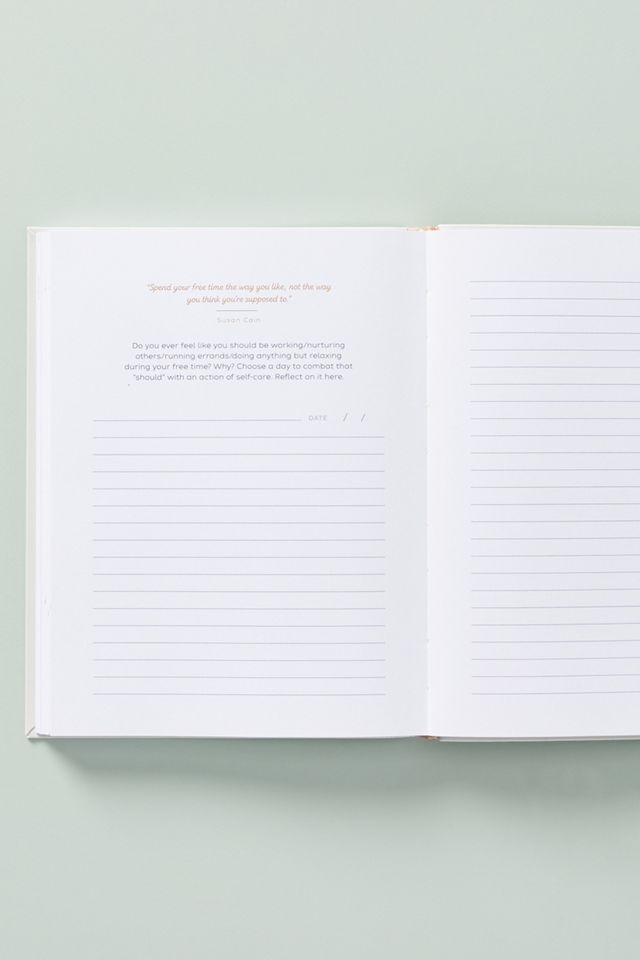 "Spend your free time the way you like, not the way
you think you're supposed to."
Susan Cain
Do you ever feel like you should be working/nurturing
others/running errands/doing anything but relaxing
during your free time? Why? Choose a day to combat that
"should" with an action of self-care. Reflect on it here.
DATE / /